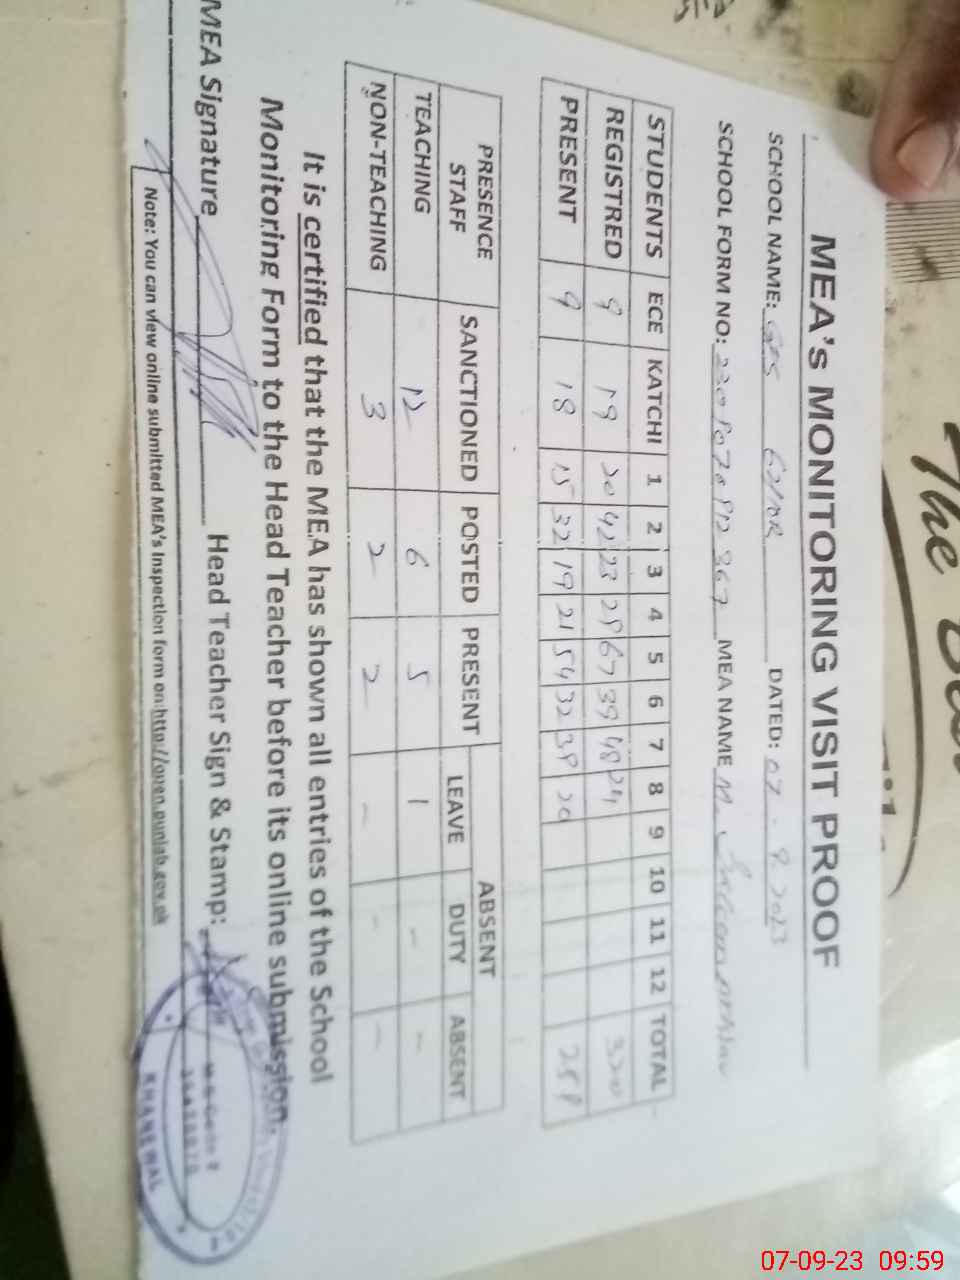 The
MEA's MONITORING VISIT PROOF
SCHOOL NAME: GES DATED: 07-9-2023
SCHOOL FORM NO: MEA NAME M.
STUDENTS ECE KATCHI 1 2 3 4 5 6 7 8 9 10 11 12 TOTAL
REGISTRED 9 19 20 42 23 28 67 39 48 24 320
PRESENT 9 18 15 32 19 21 54 32 38 20 258
PRESENCE STAFF SANCTIONED POSTED PRESENT ABSENT
LEAVE DUTY ABSENT
TEACHING 12 6 5 1 - -
NON-TEACHING 3 2 2 - - -
It is certified that the MEA has shown all entries of the School
Monitoring Form to the Head Teacher before its online submission.
MEA Signature Head Teacher Sign & Stamp:
KHANEWAL
Note: You can view online submitted MEA's Inspection form on:http://open.punjab.gov.pk
07-09-23 09:59